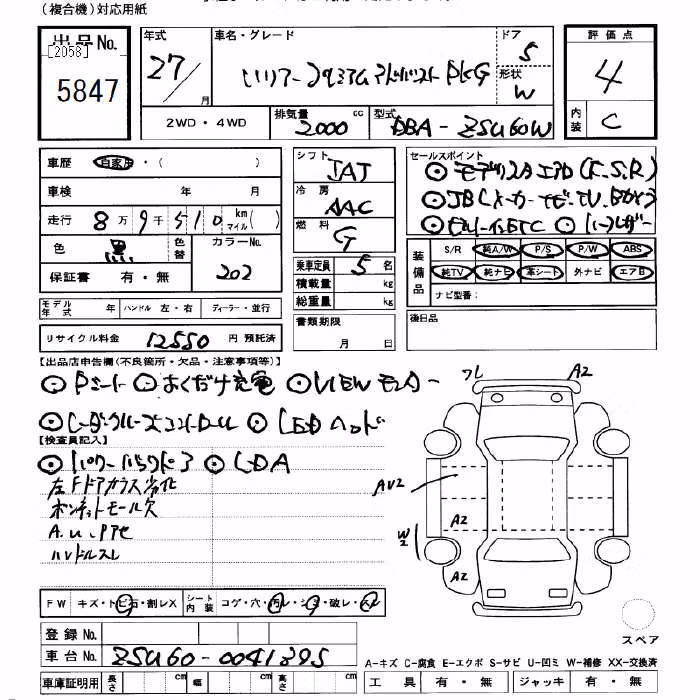 (複合機)対応用紙
出品No.
[2058]
5847
年式
27/月
車名・グレード
ハリアー プレミアム アドバンスト PkG
ドア
5
形状
W
評価点
4
内装
C
2WD・4WD
排気量
2000 cc
型式
DBA-ZSU60W
車歴
自家用・( )
車検 年 月
走行 8万9千510 km マイル( )
色
黒
色替
カラーNo.
202
保証書 有・無
モデル年式 年
ハンドル 左・右
ディーラー・並行
リサイクル料金 12550 円 預託済
シフト
IAT
冷房
AAC
燃料
G
乗車定員 5 名
積載量 kg
総重量 kg
書類期限
月 日
セールスポイント
◎モデリスタエアロ(F.S.R)
◎JBLメーカーナビ-TV.Bカメラ
◎ビルトインETC ◎ハーフレザー
装備品
S/R 純A/W P/S P/W ABS
純TV 純ナビ 革シート 外ナビ エアB
ナビ型番:
後日品
【出品店申告欄(不良箇所・欠品・注意事項等)】
◎Pシート ◎おくだけ充電 ◎VIEWモニター
◎レーダークルーズコントロール ◎LEDヘッド
【検査員記入】
◎パワーバックドア ◎LDA
左Fドアガラス劣化
ボンネットモール欠
ハンドルスレ
FW キズ・トビ石・割レX
シート内装 コゲ・穴・汚レ・シミ・破レ・スレ
登録No.
車台No. ZSU60-0041395
車庫証明用 長さ cm 幅 cm 高さ cm
ワレ
A2
AU2
A2
W2
A2
スペア
A-キズ C-腐食 E-エクボ S-サビ U-凹ミ W-補修 XX-交換済
工具 有・無 ジャッキ 有・無